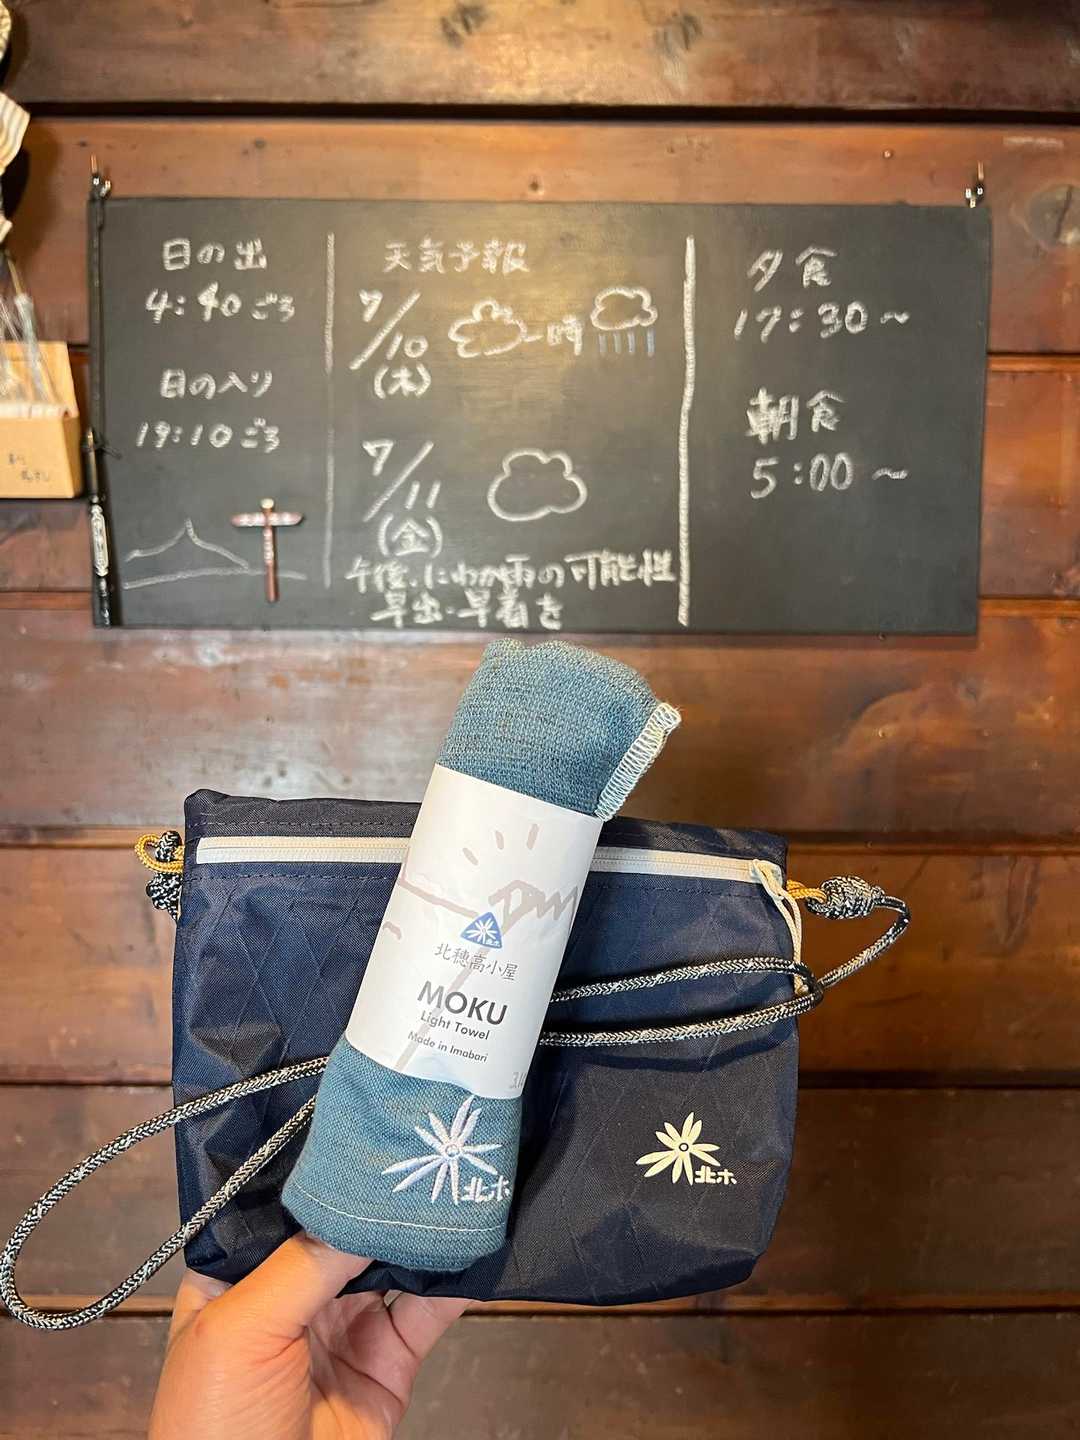 日の出
4:40ごろ
日の入り
19:10ごろ
天気予報
7/10
一時
(木)
7/11
(金)
午後、にわか雨の可能性
早出・早着を
夕食
17:30～
朝食
5:00～
北ホ
北穂高小屋
MOKU
Light Towel
Made in Imabari
北ホ
北ホ